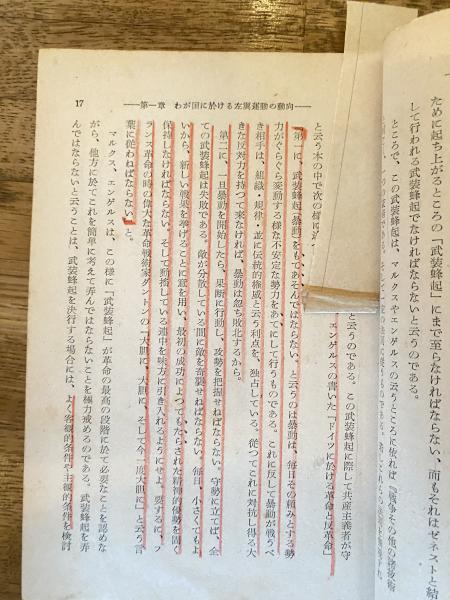 17 ―第一章 わが国に於ける左翼運動の動向―
ために起ち上がるところの「武装蜂起」にまで至らなければならない、而もそれはゼネストと結
して行われる武装蜂起でなければならないと云うのである。
ところで、この武装蜂起は、マルクスやエンゲルスの云うところに依れば、「戦争その他の諸技術
と云うのである。この武装蜂起に際して共産主義者が守
エンゲルスの書いた「ドイツに於ける革命と反革命」
と云う本の中で次の様に
「第一に、武装蜂起（暴動）をもてあそんではならない。と云うのは暴動は、毎日その頼みとする勢
力がぐらぐら変動する様な不安定な勢力をあてにして行うものである。これに反して暴動が戦うべ
き相手は、組織・規律・並に伝統的権威と云う利点を、独占している。従つてこれに対抗し得る大
きな反対力を持つて来なければ、暴動は忽ち敗北するから。
第二に、一旦暴動を開始したら、果断に行動し、攻勢を把握せねばならない。守勢に立てば、全
ての武装蜂起は失敗である。敵が分散している間に敵を奇襲せねばならない。毎日、小さくてもよ
いから、新しい戦果を挙げることに意を用い、最初の成功によつてもたらされた精神的優勢を固く
保持しなければならない。そして動揺している連中を味方に引き入れるようにせよ。要するに、フ
ランス革命の時の偉大な革命戦術家ダントンの「大胆に、大胆に、そして今一度大胆に」と云う言
葉に従わねばならない」と。
マルクス、エンゲルスは、この様に「武装蜂起」が革命の最高の段階に於て必要なことを認めな
がら、他方に於てこれを簡単に考えて弄んではならないことを極力戒めるのである。武装蜂起を弄
んではならないと云うことは、武装蜂起を決行する場合には、よく客観的条件や主観的条件を検討